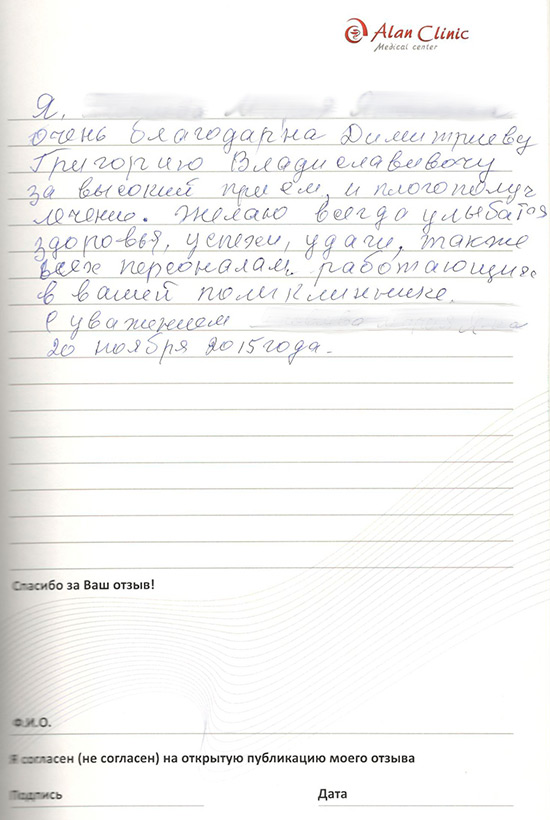 Alan Clinic
Medical center
Я,
очень благодарна Димитриеву
Григорию Владиславивочу
за высокий приём, и плогополуч
лечение. Желаю всегда улыбатся
здоровья, успехи, удачи, также
всех персоналам работающих
в вашей поликлиннике.
С уважением
20 ноября 2015 года.
Спасибо за Ваш отзыв!
Ф.И.О.
Я согласен (не согласен) на открытую публикацию моего отзыва
Подпись Дата